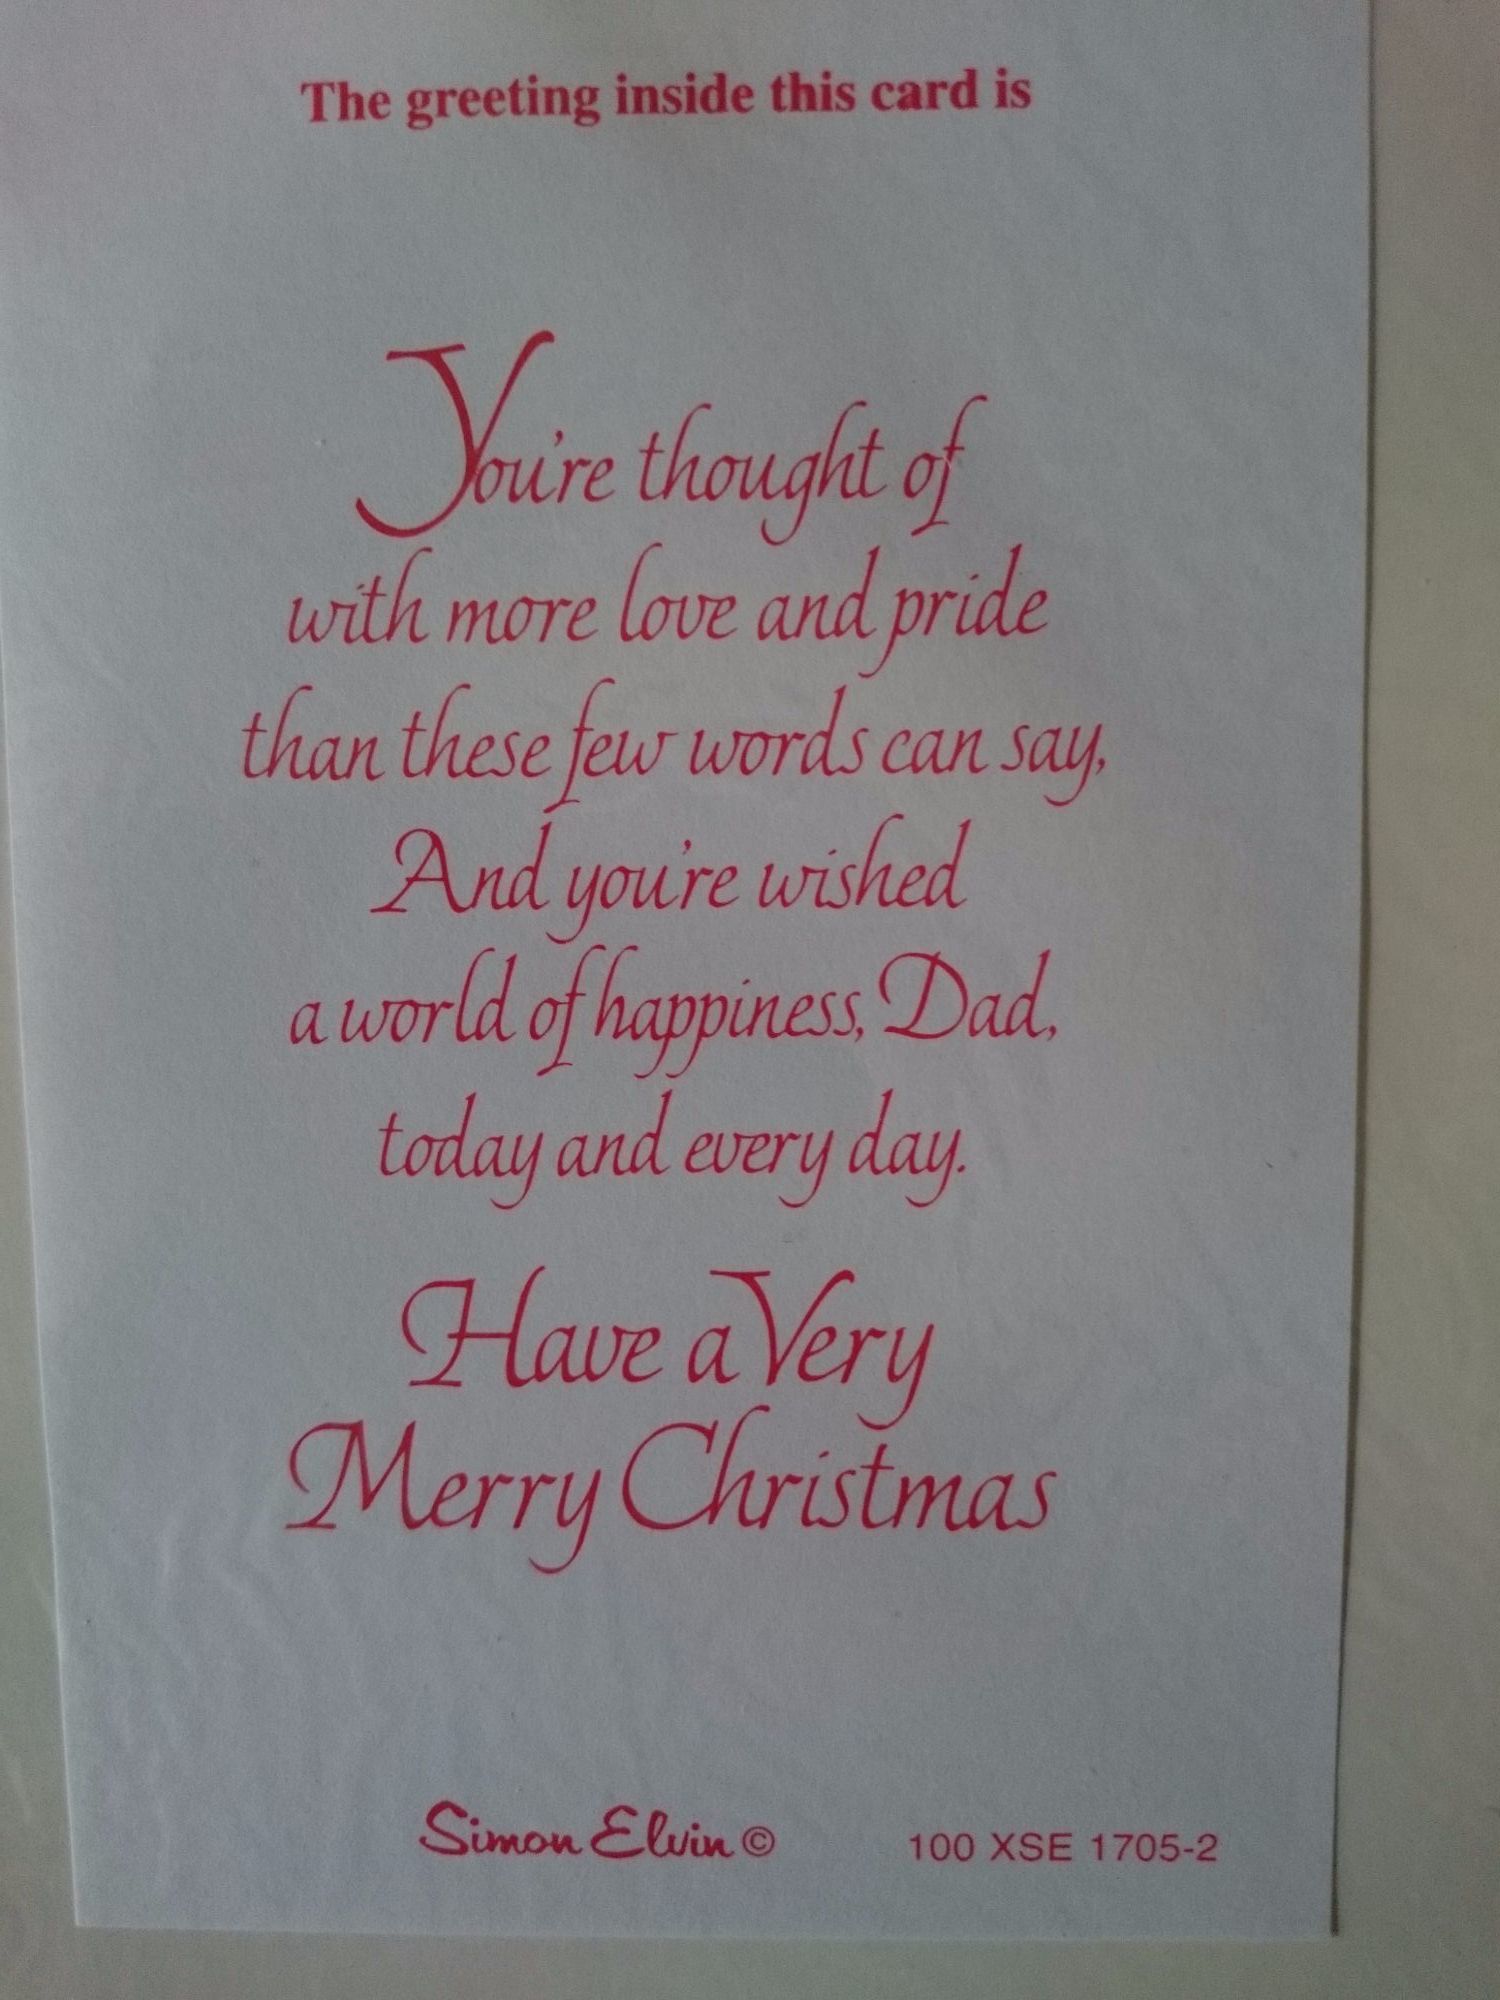 The greeting inside this card is
You're thought of
with more love and pride
than these few words can say,
And you're wished
a world of happiness, Dad,
today and every day.
Have a Very
Merry Christmas
Simon Elvin © 100 XSE 1705-2